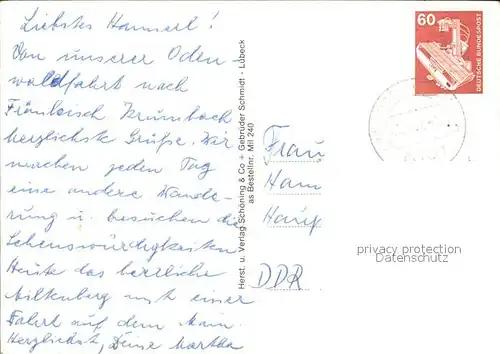 Liebstes Hannerl!
Von unserer Oden-
waldfahrt nach
Fränkisch Krumbach
herzlichste Grüße. Wir
machen jeden Tag
eine andere Wande-
rung u. besuchen die
Sehenswürdigkeiten
Heute das herrliche
Miltenberg mit einer
Fahrt auf dem Main.
Herzlichst, Deine Martha
Herst. u. Verlag Schöning & Co + Gebrüder Schmidt - Lübeck
as Bestellnr. Mil 240
60
DEUTSCHE BUNDESPOST
Frau
DDR
privacy protection
Datenschutz